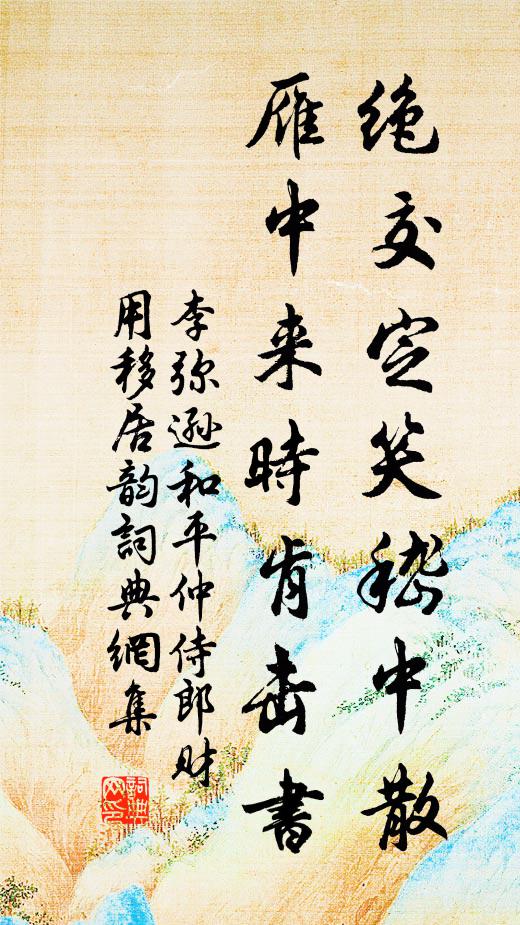 绝交定笑嵇中散
雁中来時肯書
李弥遜和平仲侍郎财
用移居韵詞典網集